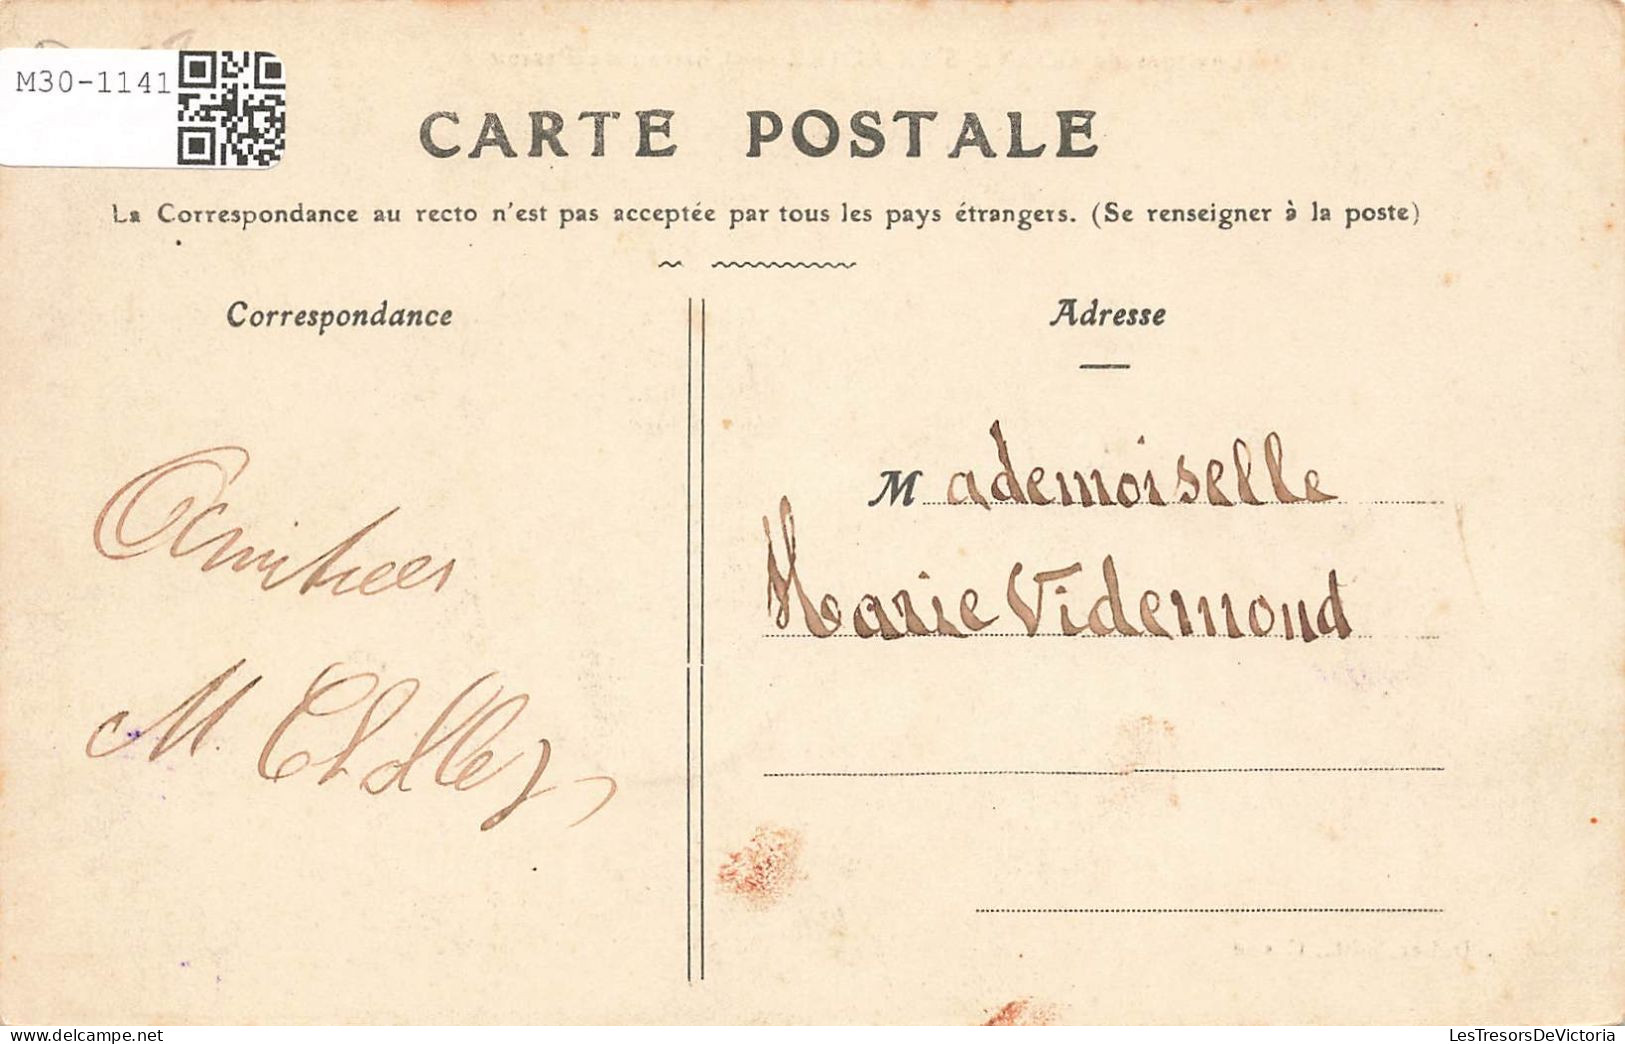 M30-1141
CARTE POSTALE
La Correspondance au recto n'est pas acceptée par tous les pays étrangers. (Se renseigner à la poste)
Correspondance
Adresse
Mademoiselle
Marie Videmond
Amitiées
M.
LesTresorsDeVictoria